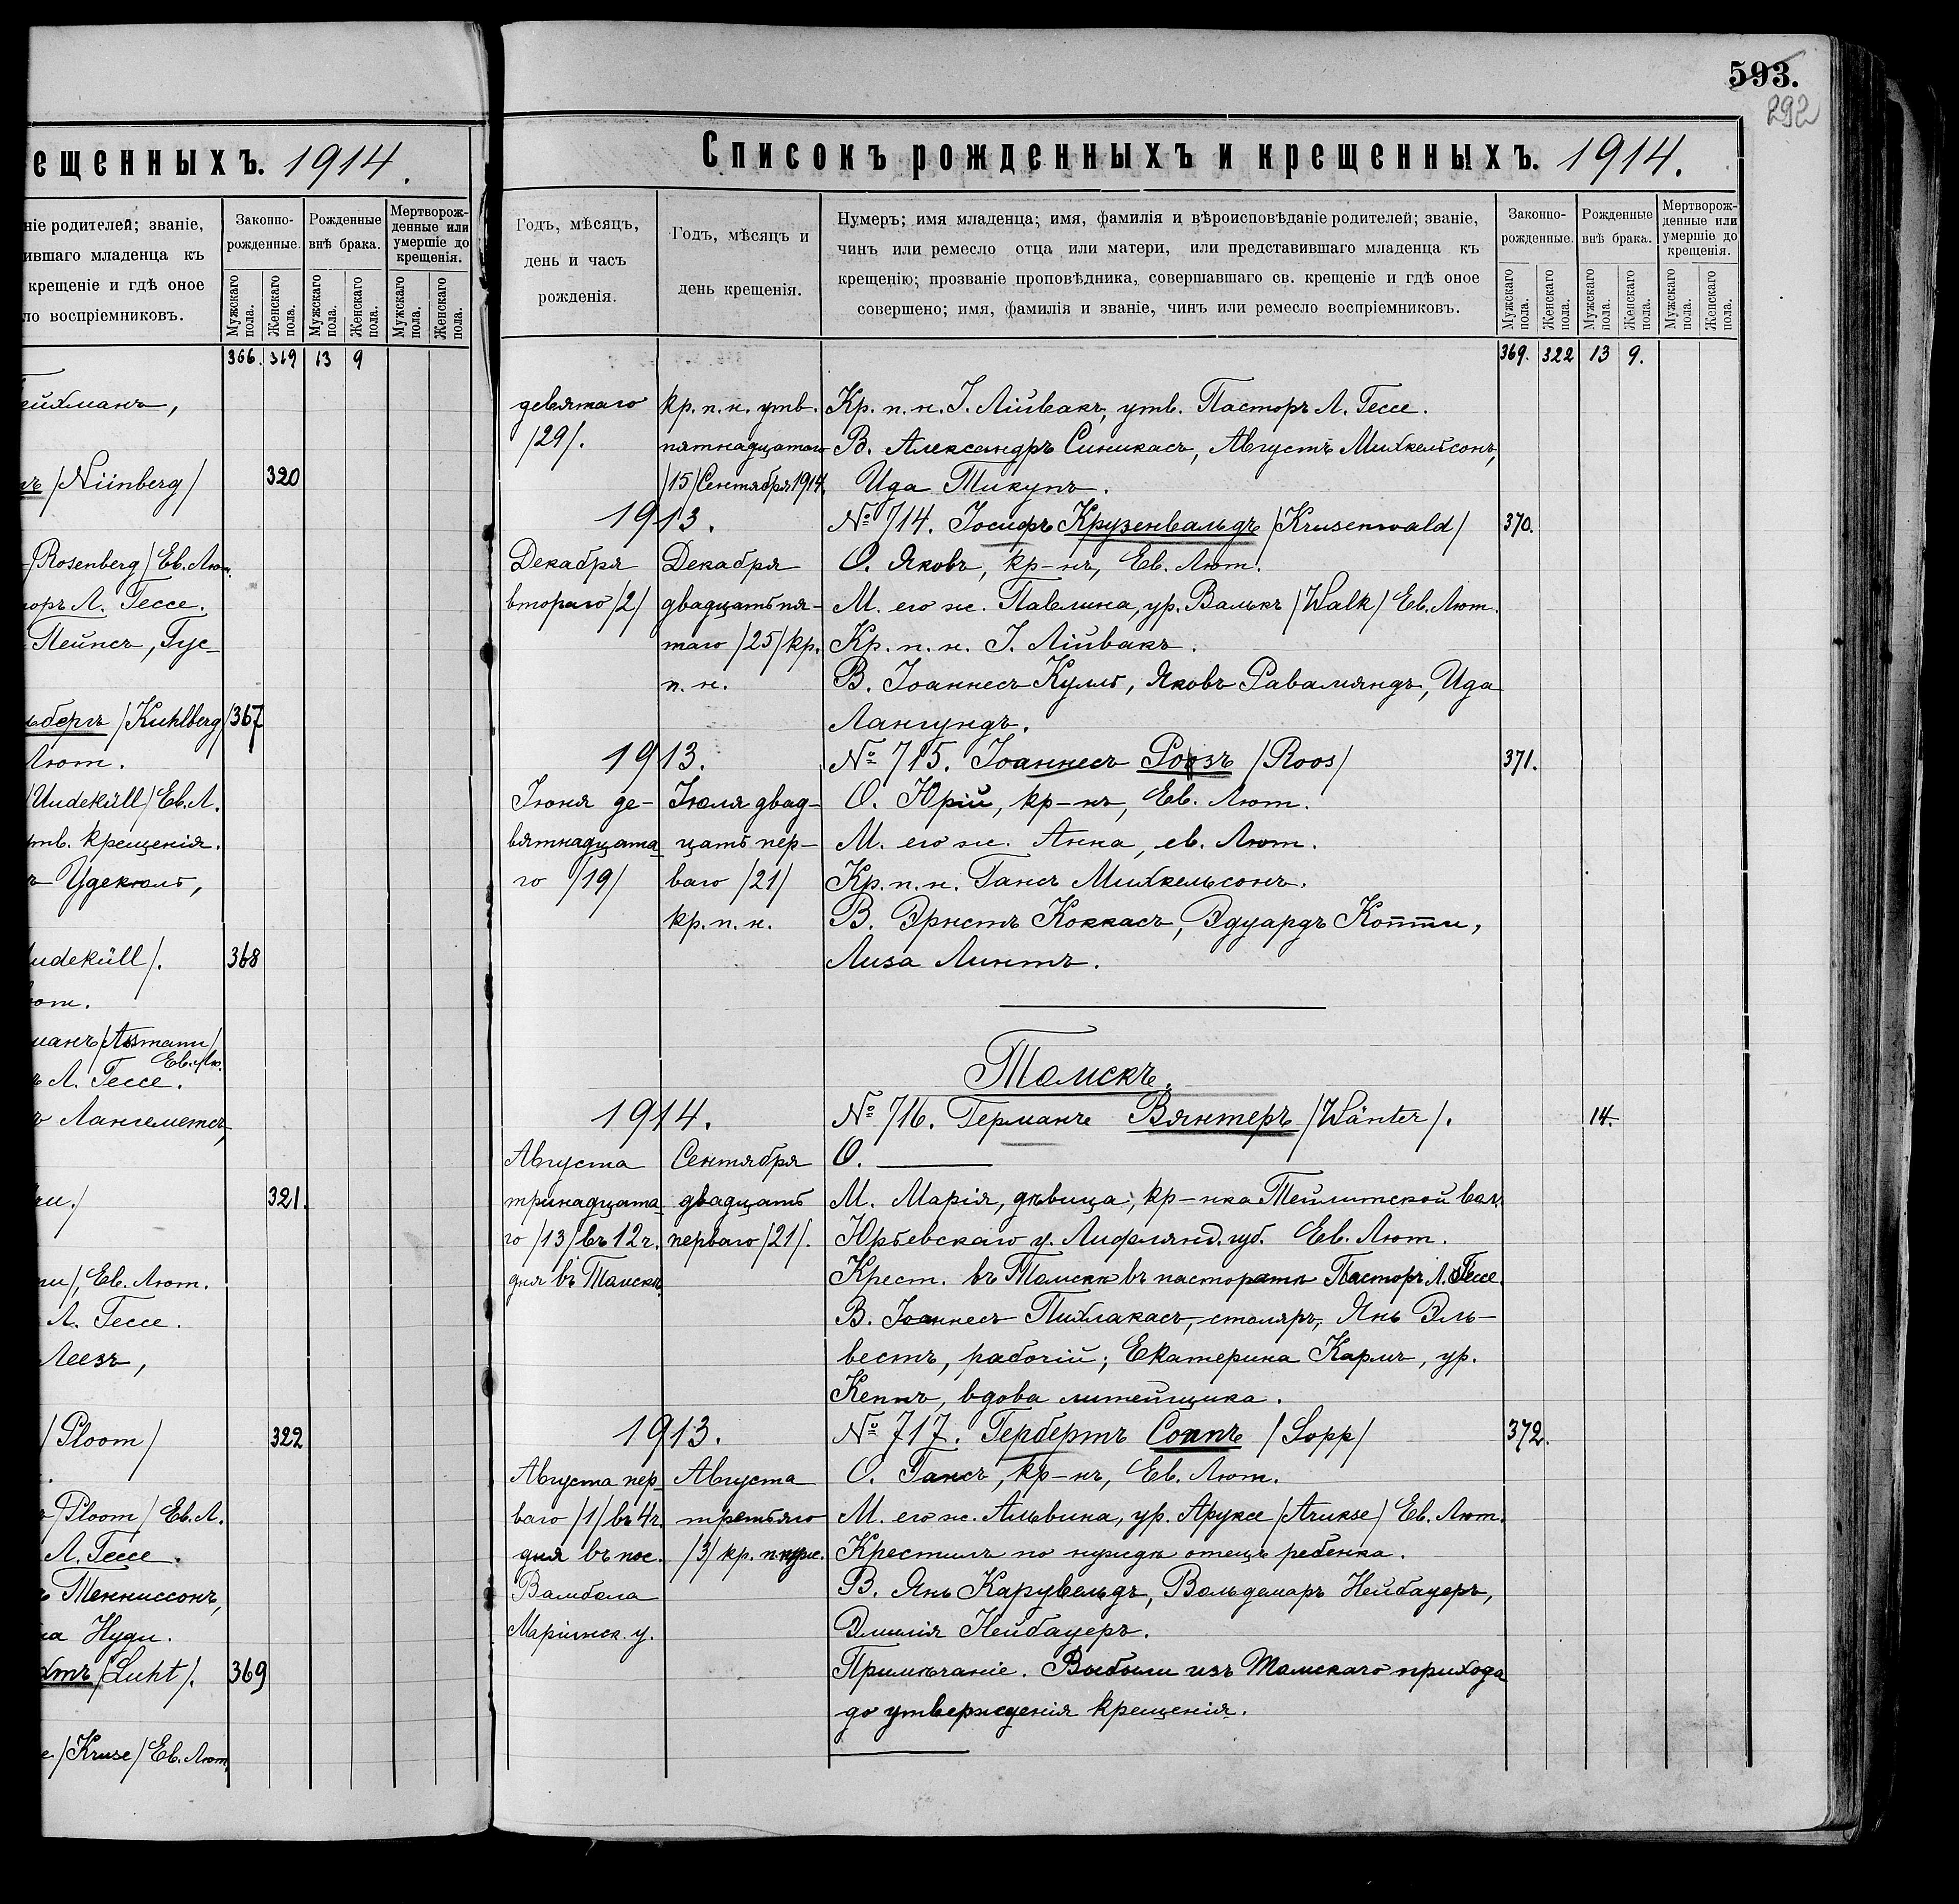 ещенныхъ. 1914.
ніе родителей; званіе,
ившаго младенца къ
крещеніе и гдѣ оное
ло воспріемниковъ.
Законно-
рожденные.
Рожденные
внѣ брака.
Мертворож-
денные или
умершіе до
крещенія.
Мужскаго пола.
Женскаго пола.
Мужскаго пола.
Женскаго пола.
Мужскаго пола.
Женскаго пола.
366. 319 13 9
ейхманъ,
/Nünberg/ 320
/Rosenberg/ Ев. Лют.
оръ Л. Гессе.
Пейпсъ, Гус-
ьбергъ /Kuhlberg/ 367
Лют.
/Uudeküll/ Ев. Л.
утв. крещенія.
Удекюль,
Uudeküll/. 368
ют.
манъ /Assmann/
Ев. Лю.
Л. Гессе.
ъ Лангеметсъ,
321.
Ев. Лют.
Л. Гессе.
Леезъ,
/Ploom/ 322
/Ploom/ Ев. Л.
Л. Гессе.
Тенниссонъ,
на Нуди.
хтъ /Luht/. 369
е /Kruse/ Ев. Лют,
593.
292
Списокъ рожденныхъ и крещенныхъ. 1914.
Годъ, мѣсяцъ,
день и часъ
рожденія.
Годъ, мѣсяцъ и
день крещенія.
Нумеръ; имя младенца; имя, фамилія и вѣроисповѣданіе родителей; званіе,
чинъ или ремесло отца или матери, или представившаго младенца къ
крещенію; прозваніе проповѣдника, совершавшаго св. крещеніе и гдѣ оное
совершено; имя, фамилія и званіе, чинъ или ремесло воспріемниковъ.
Законно-
рожденные.
Рожденные
внѣ брака.
Мертворож-
денные или
умершіе до
крещенія.
Мужскаго пола.
Женскаго пола.
Мужскаго пола.
Женскаго пола.
Мужскаго пола.
Женскаго пола.
369. 322 13 9.
девятаго кр. п. н. утв. Кр. п. н. I. Лійвакъ, утв. Пасторъ Л. Гессе.
/29/. пятнадцатаго В. Александръ Синикасъ, Августъ Михкельсонъ,
/15/ Сентября 1914. Ида Тикупъ.
1913. № 714. Іосифъ Крузенвальдъ /Krusenwald/ 370.
Декабря Декабря О. Яковъ, кр-нъ, Ев. Лют.
втораго /2/ двадцать пя- М. его ж. Павлина, ур. Валькъ /Walk/ Ев. Лют.
таго /25/ кр. Кр. п. н. I. Лійвакъ.
п. н. В. Іоаннесъ Кулль, Яковъ Равамяндъ, Ида
Лангундъ.
1913. № 715. Іоаннесъ Роозъ /Roos/ 371.
Іюня де- Іюля двад- О. Юрій, кр-нъ, Ев. Лют.
вятнадцата- цать пер- М. его ж. Анна, ев. Лют.
го /19/ ваго /21/ Кр. п. н. Гансъ Михкельсонъ.
кр. п. н. В. Эрнстъ Коккасъ, Эдуардъ Котти,
Лиза Линтъ.
Томскъ.
1914. № 716. Германъ Вянтеръ /Wänter/. 14.
Августа Сентября О. —
тринадцата- двадцать М. Марія, дѣвица, кр-нка Тейлитской вол.
го /13/ въ 12 ч. перваго /21/. Юрьевскаго у. Лифлянд. губ. Ев. Лют.
дня въ Томскѣ. Крест. въ Томскѣ въ пасторатѣ Пасторъ Л. Гессе.
В. Іоаннесъ Пихлакасъ, столяръ, Янъ Эль-
вестъ, рабочій; Екатерина Кармъ, ур.
Кеппъ, вдова литейщика.
1913. № 717. Гербертъ Соппъ /Sopp/ 372.
Августа пер- Августа О. Гансъ, кр-нъ, Ев. Лют.
ваго /1/ въ 4 ч. третьяго М. его ж. Альвина, ур. Аруксе /Arukse/ Ев. Лют.
дня въ пос. /3/ кр. п. нуж. Крестилъ по нуждѣ отецъ ребенка.
Вамбола В. Янъ Карувельдъ, Вольдемаръ Нейбауеръ,
Маріинск. у. Эмилія Нейбауеръ.
Примѣчаніе. Выбыли изъ Томскаго прихода
до утвержденія крещенія.